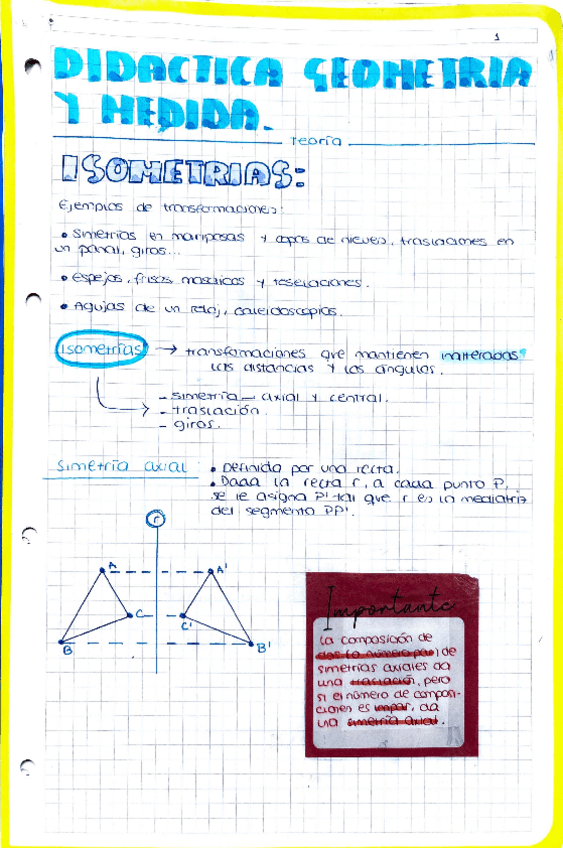 1
DIDACTICA GEOMETRIA
Y MEDIDA.
Teoría
ISOMETRIAS:
Ejemplos de transformaciones:
• Simetrías en mariposas y copos de nieves, traslaciones en
un panal, giros...
• Espejos, frisos mosaicos y teselaciones.
• Agujas de un reloj, caleidoscopios.
isometrías → transformaciones que mantienen inalteradas
las distancias y los ángulos.
- simetría - axial y central.
- traslación.
- giros.
simetría axial : • Definida por una recta.
• Dada la recta r, a cada punto P,
se le asigna P' tal que r es la mediatriz
del segmento PP'.
r
A A'
C C'
B B'
Importante
La composición de
dos (o número par) de
simetrías axiales da
una traslación, pero
si el número de composi-
ciones es impar, da
una simetría axial.